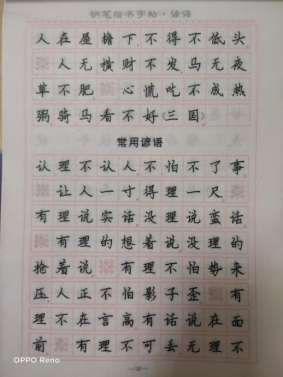 钢笔楷书字帖·谚语
人在屋檐下不得不低头
人无横财不发马无夜
草不肥 心慌吃不成热
粥骑马看不好(三国)
常用谚语
认理不认人不怕不了事
让人一寸得理一尺
有理说实话没理说蛮话
有理的想着说没理的
抢着说 有理不怕势来
压人正不怕影子歪 有
理不在言高有话说在面
前 有理不可丢无理不
OPPO Reno